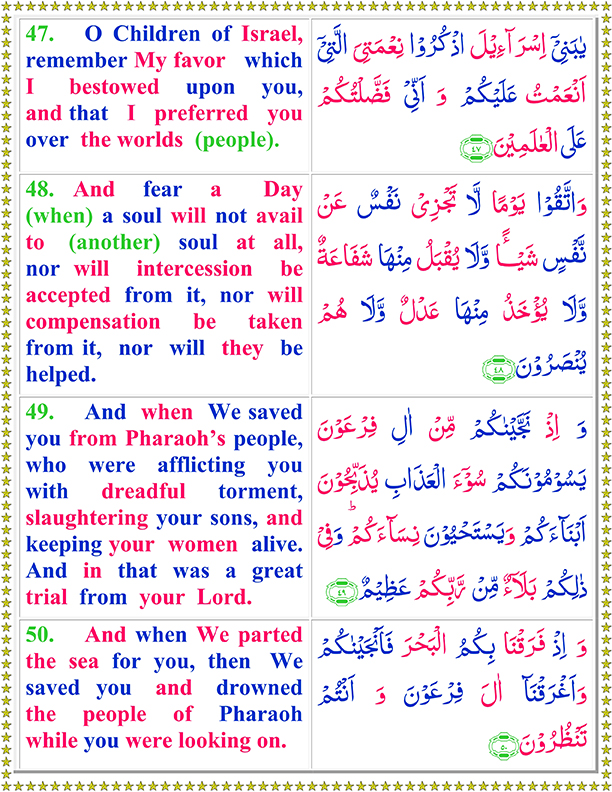 47. O Children of Israel,
remember My favor which
I bestowed upon you,
and that I preferred you
over the worlds (people).
يٰبَنِىْٓ اِسْرَآءِيْلَ اذْكُرُوْا نِعْمَتِىَ الَّتِىْٓ
اَنْعَمْتُ عَلَيْكُمْ وَ اَنِّىْ فَضَّلْتُكُمْ
عَلَى الْعٰلَمِيْنَ ٤٧
48. And fear a Day
(when) a soul will not avail
to (another) soul at all,
nor will intercession be
accepted from it, nor will
compensation be taken
from it, nor will they be
helped.
وَاتَّقُوْا يَوْمًا لَّا تَجْزِىْ نَفْسٌ عَنْ
نَّفْسٍ شَيْـــًٔا وَّلَا يُقْبَلُ مِنْهَا شَفَاعَةٌ
وَّلَا يُؤْخَذُ مِنْهَا عَدْلٌ وَّلَا هُمْ
يُنْصَرُوْنَ ٤٨
49. And when We saved
you from Pharaoh’s people,
who were afflicting you
with dreadful torment,
slaughtering your sons, and
keeping your women alive.
And in that was a great
trial from your Lord.
وَ اِذْ نَجَّيْنٰكُمْ مِّنْ اٰلِ فِرْعَوْنَ
يَسُوْمُوْنَكُمْ سُوْٓءَ الْعَذَابِ يُذَبِّحُوْنَ
اَبْنَآءَكُمْ وَيَسْتَحْيُوْنَ نِسَآءَكُمْ ؕ وَفِىْ
ذٰلِكُمْ بَلَآءٌ مِّنْ رَّبِّكُمْ عَظِيْمٌ ٤٩
50. And when We parted
the sea for you, then We
saved you and drowned
the people of Pharaoh
while you were looking on.
وَ اِذْ فَرَقْنَا بِكُمُ الْبَحْرَ فَاَنْجَيْنٰكُمْ
وَاَغْرَقْنَآ اٰلَ فِرْعَوْنَ وَ اَنْتُمْ
تَنْظُرُوْنَ ٥٠